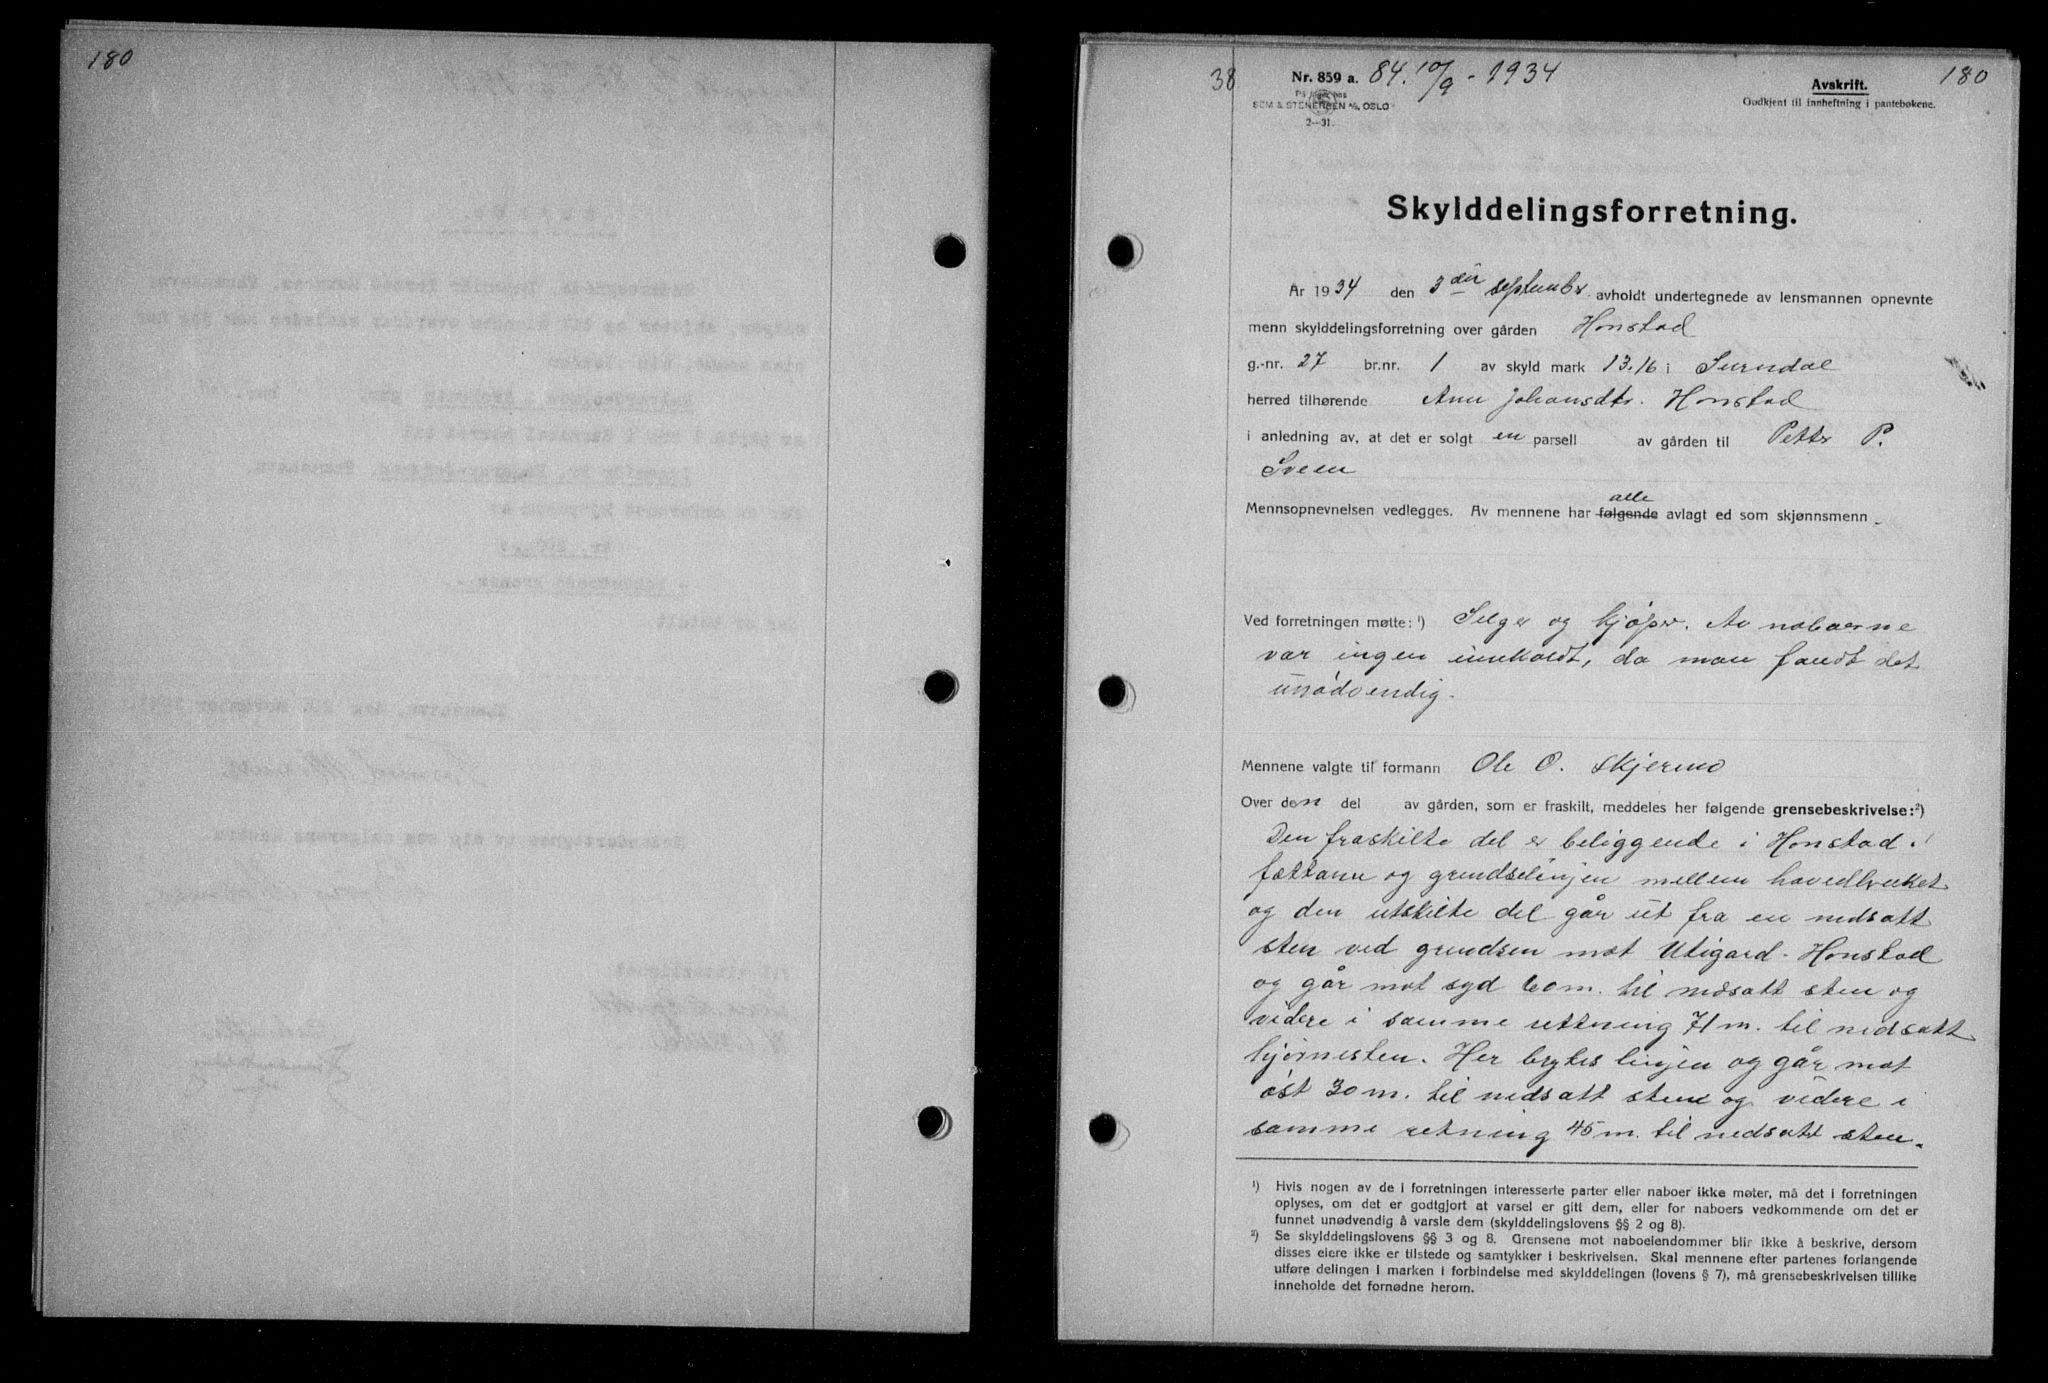 180
38 Nr. 859 a. 84. 10/9 - 1934 180
Avskrift.
På lager hos
SEM & STENERSEN A/S, OSLO
Godkjent til innheftning i pantebøkene.
2—31.
Skylddelingsforretning.
År 1934 den 3den september avholdt undertegnede av lensmannen opnevnte
menn skylddelingsforretning over gården Honstad
g.-nr. 27 br.nr. 1 av skyld mark 13.16 i Surndal
herred tilhørende Ane Johansdtr. Honstad
i anledning av, at det er solgt en parsell av gården til Petter P.
Sveen
alle
Mennsopnevnelsen vedlegges. Av mennene har følgende avlagt ed som skjønnsmenn.
Ved forretningen møtte: ¹) Selger og kjøper. Av naboerne
var ingen innkaldt, da man fandt det
unødvendig.
Mennene valgte til formann Ole O. Skjermo
Over den del av gården, som er fraskilt, meddeles her følgende grensebeskrivelse: ²)
Den fraskilte del er beliggende i Honstad.
og grendselinjen mellem hovedbruket
og den utskilte del går ut fra en nedsatt
sten ved grendsen mot Utigard - Honstad
og går mot syd 60 m. til nedsatt sten og
videre i samme rettning 71 m. til nedsatt
hjørnesten. Her brytes linjen og går mot
øst 30 m. til nedsatt sten og videre i
samme retning 45 m. til nedsatt sten.
¹) Hvis nogen av de i forretningen interesserte parter eller naboer ikke møter, må det i forretningen
oplyses, om det er godtgjort at varsel er gitt dem, eller for naboers vedkommende om det er
funnet unødvendig å varsle dem (skylddelingslovens §§ 2 og 8).
²) Se skylddelingslovens §§ 3 og 8. Grensene mot naboeiendommer blir ikke å beskrive, dersom
disses eiere ikke er tilstede og samtykker i beskrivelsen. Skal mennene efter partenes forlangende
utføre delingen i marken i forbindelse med skylddelingen (lovens § 7), må grensebeskrivelsen tillike
inneholde det fornødne herom.